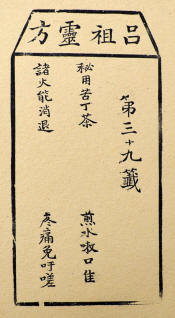 呂祖靈方
第三十九籤
秘用苦丁茶
煎水嗽口佳
諸火能消退
疼痛免吁嗟